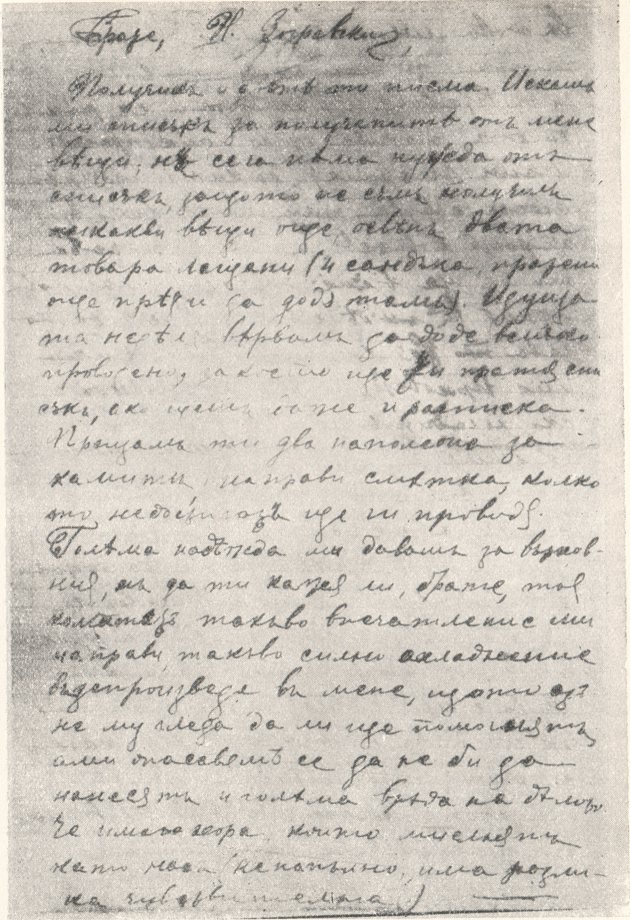 Брате, Н. Зографски,
Получихъ и двѣтѣ ти писма. Искашъ
ми списъкъ за получените отъ мене
вѣщи, нъ сега нѣма нужда отъ
списъкъ, защото не съмъ получилъ
никакви вѣщи още освѣнъ двата
товара лещани (4 сандъка, пратени
още прѣди да додѫ тамъ). Идуща
та неделя вѣрвамъ да доде всичко
проводено, за което ще ти пратя спи
съкъ, ако щешъ даже и расписка.
Пращамъ ти два наполеона за
камити, направи смѣтка, колко
то недостигатъ ще ги проводѭ.
Голѣма надѣжда ми давашъ за върхов-
ния, нъ да ти кажѫ ли, брате, тоя
комитетъ такъво впечатление ми
направи, такъво силно охлаждение
въспроизведе въ мене, щото азъ
не му гледа да ли ще помогнѫтъ
ами опасявамъ се да не би да
нанесѫтъ и голѣма врѣда на дѣлото.
Че имало хора, които мислѭтъ
като наси (не напълно, има разли-
ка чувствителна)